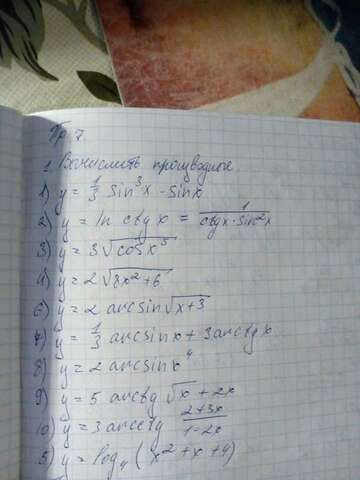 Пр 7
1. Вычислить производные
1) y = 1/3 sin³x - sinx
2) y = ln ctg x = 1/(ctgx·sin²x)
3) y = 3√(cos x³)
4) y = 2√(8x²+6)
6) y = 2 arcsin√(x+3)
7) y = 1/3 arcsinx + 3arctgx
8) y = 2 arcsinx⁴
9) y = 5 arctg √x + 2x
10) y = 3arcctg (2+3x)/(1-2x)
5) y = log₄(x²+x+4)